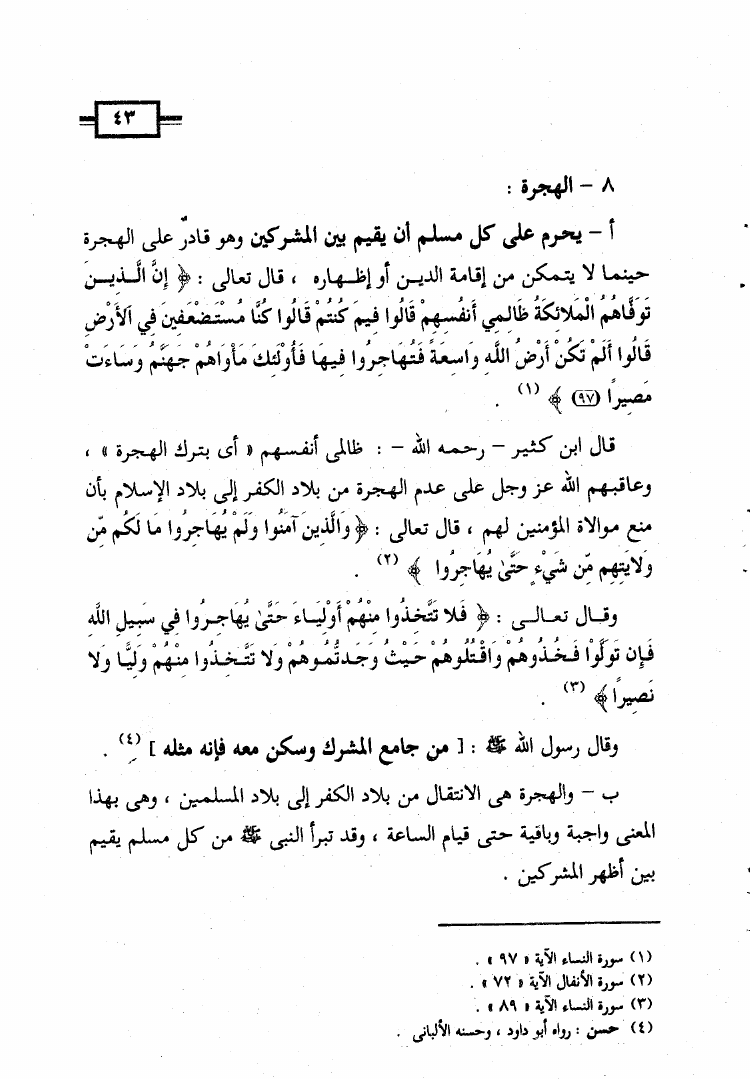 ٤٣
٨ – الهجرة :
أ – يحرم على كل مسلم أن يقيم بين المشركين وهو قادرٌ على الهجرة
حينما لا يتمكن من إقامة الدين أو إظهاره ، قال تعالى : ﴿ إِنَّ الَّذِينَ
تَوَفَّاهُمُ الْمَلائِكَةُ ظَالِمِي أَنفُسِهِمْ قَالُوا فِيمَ كُنتُمْ قَالُوا كُنَّا مُسْتَضْعَفِينَ فِي الأَرْضِ
قَالُوا أَلَمْ تَكُنْ أَرْضُ اللَّهِ وَاسِعَةً فَتُهَاجِرُوا فِيهَا فَأُوْلَئِكَ مَأْوَاهُمْ جَهَنَّمُ وَسَاءَتْ
مَصِيرًا (٩٧) ﴾ (١) .
قال ابن كثير – رحمه الله – : ظالمى أنفسهم « أى بترك الهجرة » ،
وعاقبهم الله عز وجل على عدم الهجرة من بلاد الكفر إلى بلاد الإسلام بأن
منع موالاة المؤمنين لهم ، قال تعالى : ﴿ وَالَّذِينَ آمَنُوا وَلَمْ يُهَاجِرُوا مَا لَكُم مِّن
وَلايَتِهِم مِّن شَيْءٍ حَتَّىٰ يُهَاجِرُوا ﴾ (٢) .
وقال تعالى : ﴿ فَلا تَتَّخِذُوا مِنْهُمْ أَوْلِيَاءَ حَتَّىٰ يُهَاجِرُوا فِي سَبِيلِ اللَّهِ
فَإِن تَوَلَّوْا فَخُذُوهُمْ وَاقْتُلُوهُمْ حَيْثُ وَجَدتُّمُوهُمْ وَلا تَتَّخِذُوا مِنْهُمْ وَلِيًّا وَلا
نَصِيرًا ﴾ (٣) .
وقال رسول الله ﷺ : [ من جامع المشرك وسكن معه فإنه مثله ] (٤) .
ب – والهجرة هى الانتقال من بلاد الكفر إلى بلاد المسلمين ، وهى بهذا
المعنى واجبة وباقية حتى قيام الساعة ، وقد تبرأ النبى ﷺ من كل مسلم يقيم
بين أظهر المشركين .
(١) سورة النساء الآية « ٩٧ » .
(٢) سورة الأنفال الآية « ٧٢ » .
(٣) سورة النساء الآية « ٨٩ » .
(٤) حسن : رواه أبو داود ، وحسنه الألبانى .